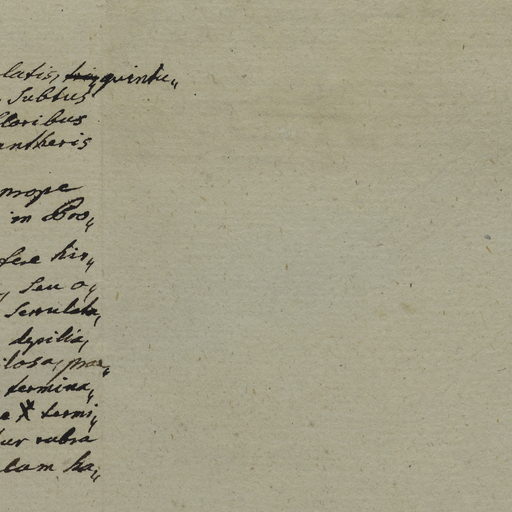 latis, quintu„
, Subtus
floribus
antheris
prope
in Bro„
fere his„
, seu o„
Serrulata,
ilosa, prae„
termina„
e X termi„
tur rubra
bam ha„